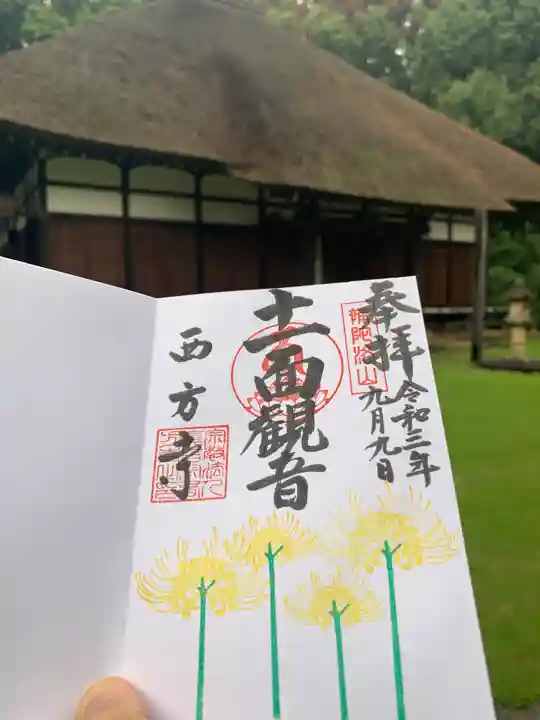 奉拝
令和三年
九月九日
補陀洛山
十一面觀音
西方寺